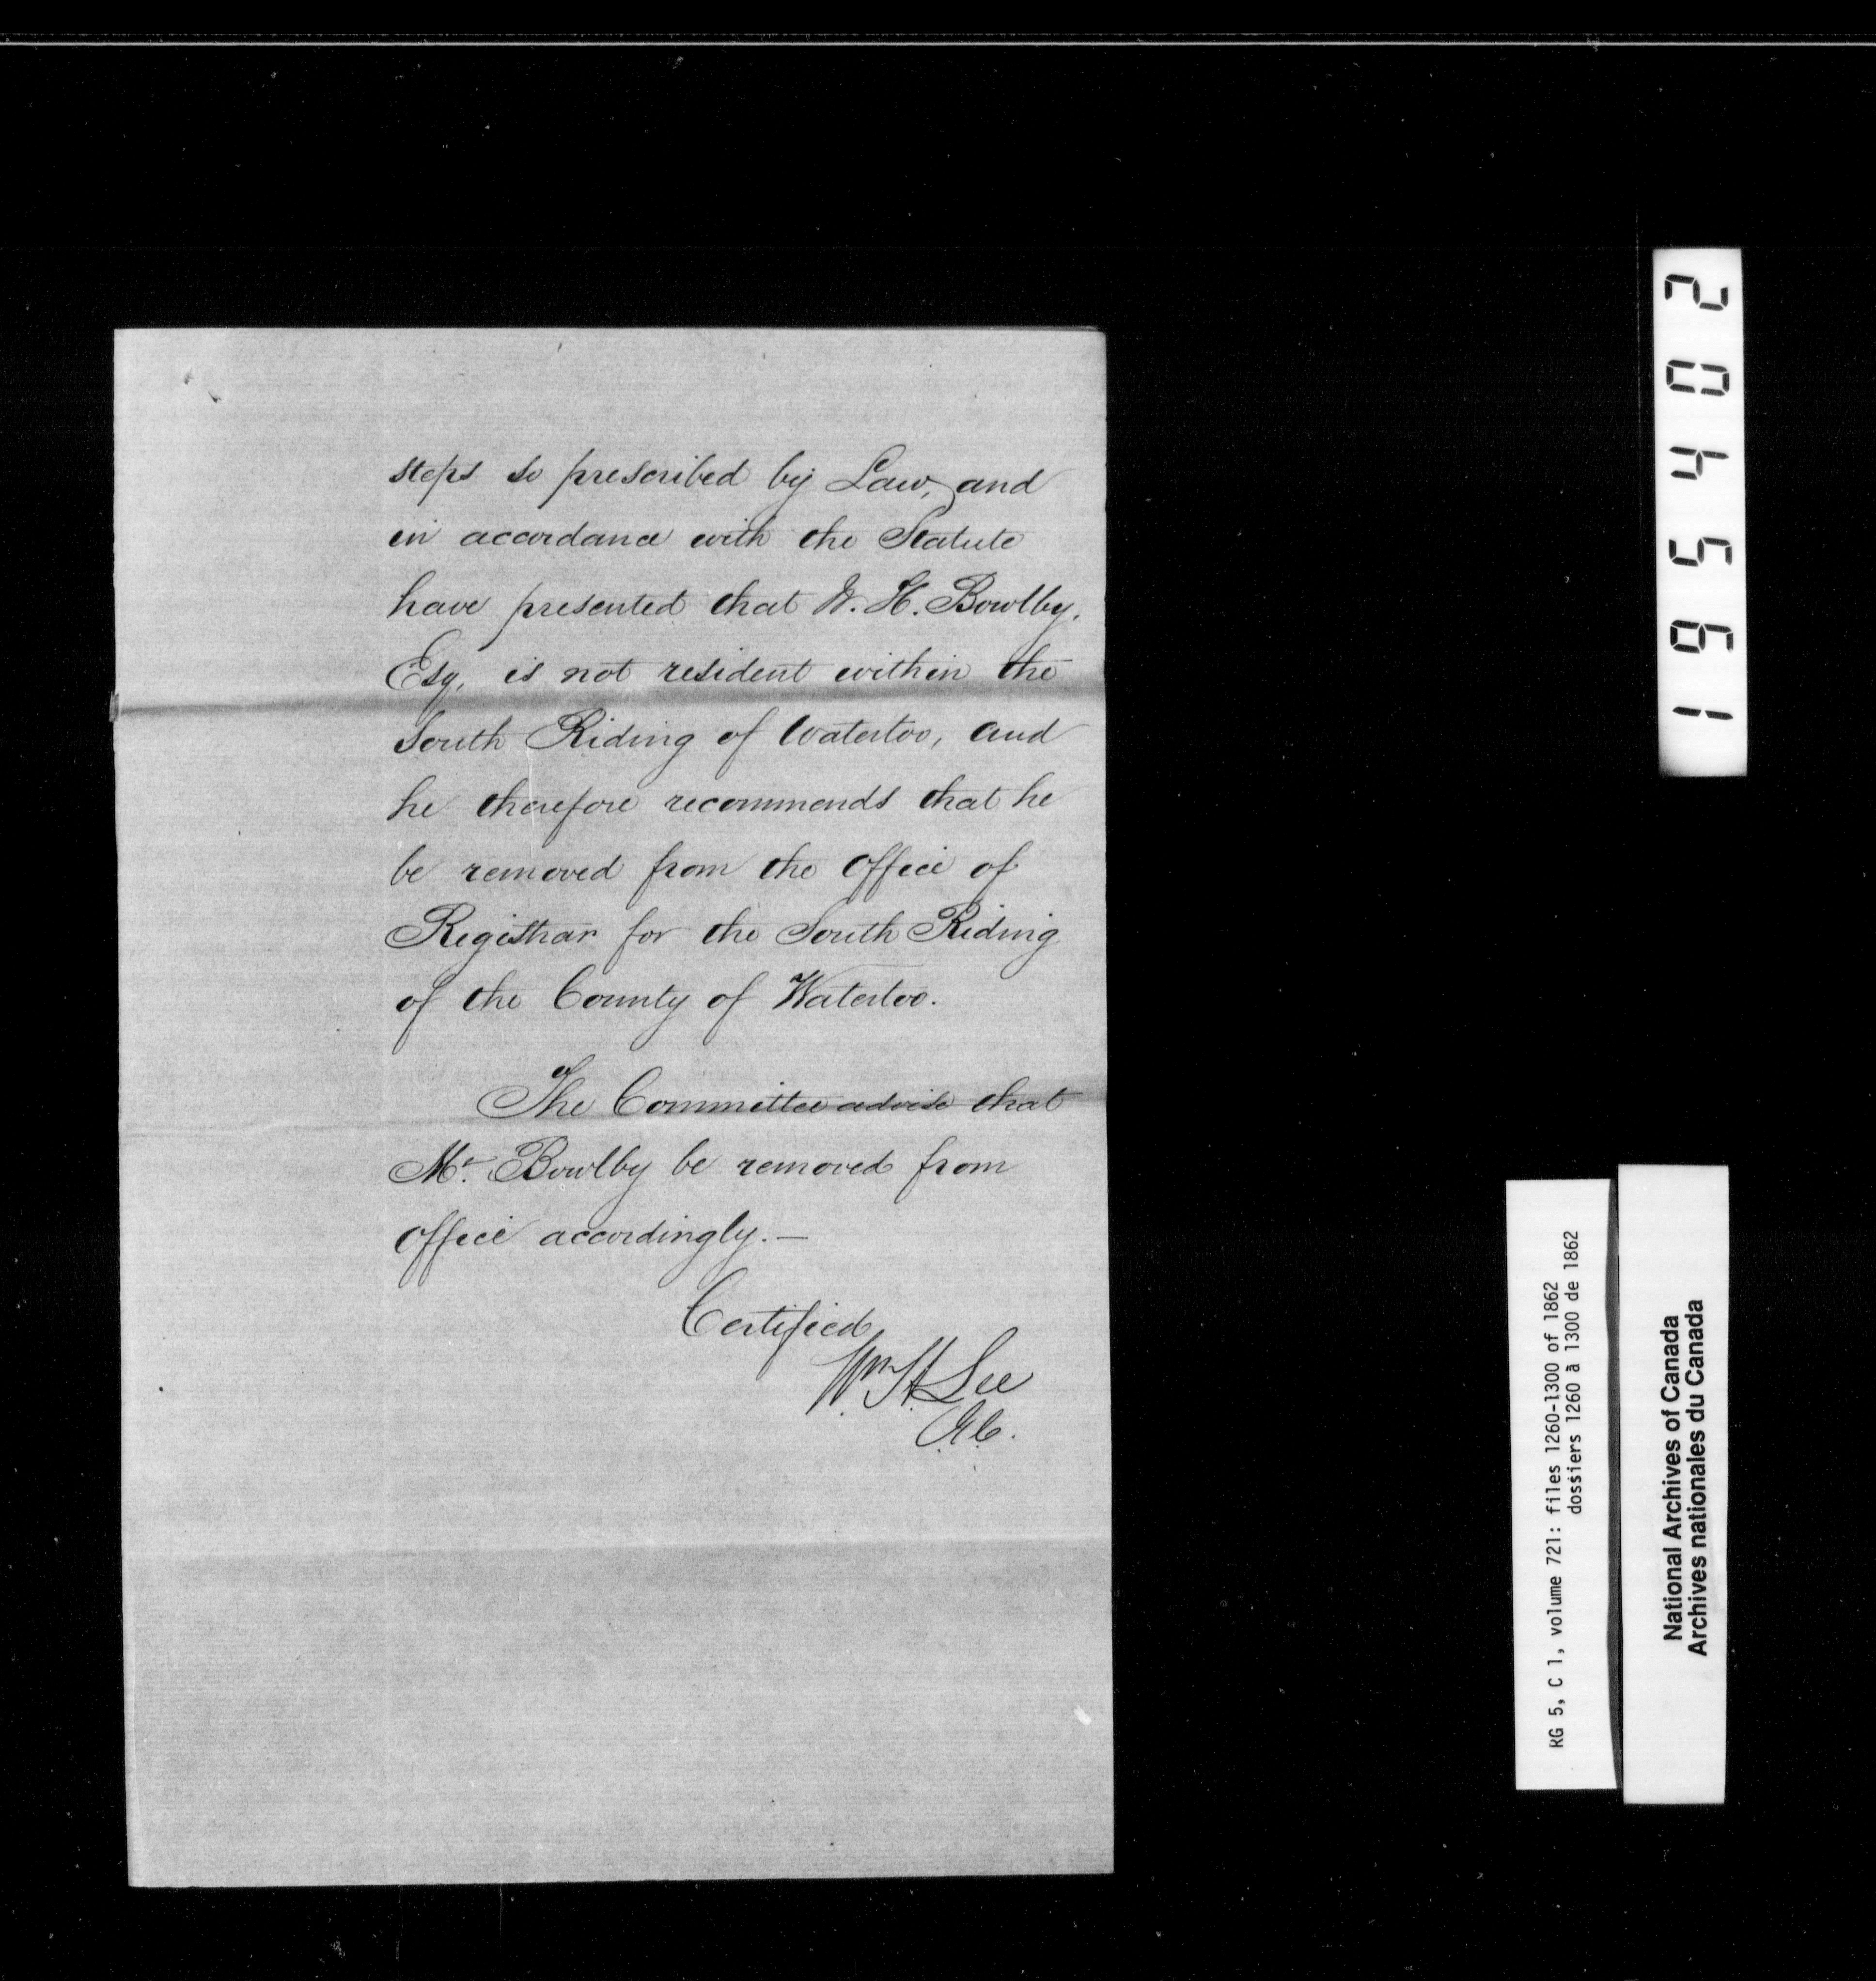 steps so prescribed by Law, and
in accordance with the Statute
have presented that W. H. Bowlby,
Esq. is not resident within the
South Riding of Waterloo, and
he therefore recommends that he
be removed from the Office of
Registrar for the South Riding
of the County of Waterloo.
The Committee advise that
Mr. Bowlby be removed from
Office accordingly.—
Certified
Wm. H. Lee
195402
RG 5, C 1, volume 721: files 1260-1300 of 1862
dossiers 1260 à 1300 de 1862
National Archives of Canada
Archives nationales du Canada